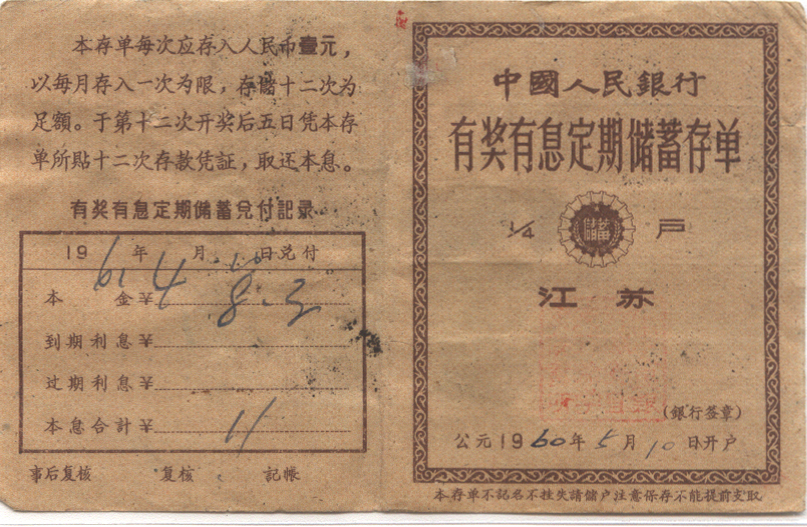 本存单每次应存入人民币壹元，
以每月存入一次为限，存储十二次为
足额。于第十二次开奖后五日凭本存
单所貼十二次存款凭証，取还本息。
有奖有息定期储蓄兑付記录
1961年4月10日兑付
本金￥
到期利息￥
过期利息￥
本息合計￥
事后复核 复核 記帳
中國人民銀行
有奖有息定期储蓄存单
1/4 儲蓄 戸
江苏
(銀行签章)
公元1960年5月10日开户
本存单不記名不挂失請儲户注意保存不能提前支取